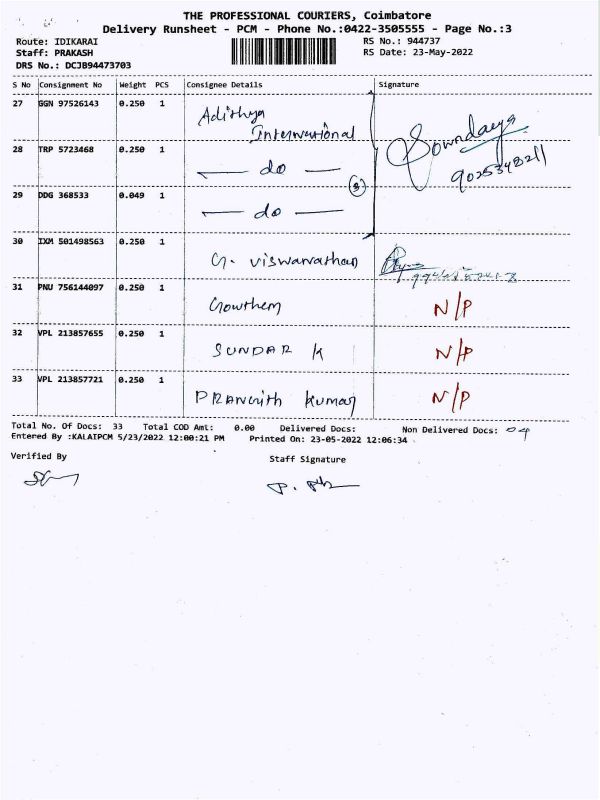 THE PROFESSIONAL COURIERS, Coimbatore
Delivery Runsheet - PCM - Phone No.:0422-3505555 - Page No.:3
Route: IDIKARAI
RS No.: 944737
Staff: PRAKASH
RS Date: 23-May-2022
DRS No.: DCJB94473703
S No Consignment No Weight PCS Consignee Details Signature
27 GGN 97526143 0.250 1 Adithya International
Sowndarya
9025348211
28 TRP 5723468 0.250 1 — do —
(3)
29 DDG 368533 0.049 1 — do —
30 IXM 501498563 0.250 1 G. Viswanathan
31 PNU 756144097 0.250 1 Gowthem N/P
32 VPL 213857655 0.250 1 SUNDAR K N/P
33 VPL 213857721 0.250 1 PRANGITH Kumar N/P
Total No. Of Docs: 33 Total COD Amt: 0.00 Delivered Docs: Non Delivered Docs: 04
Entered By :KALAIPCM 5/23/2022 12:00:21 PM Printed On: 23-05-2022 12:06:34
Verified By
Staff Signature